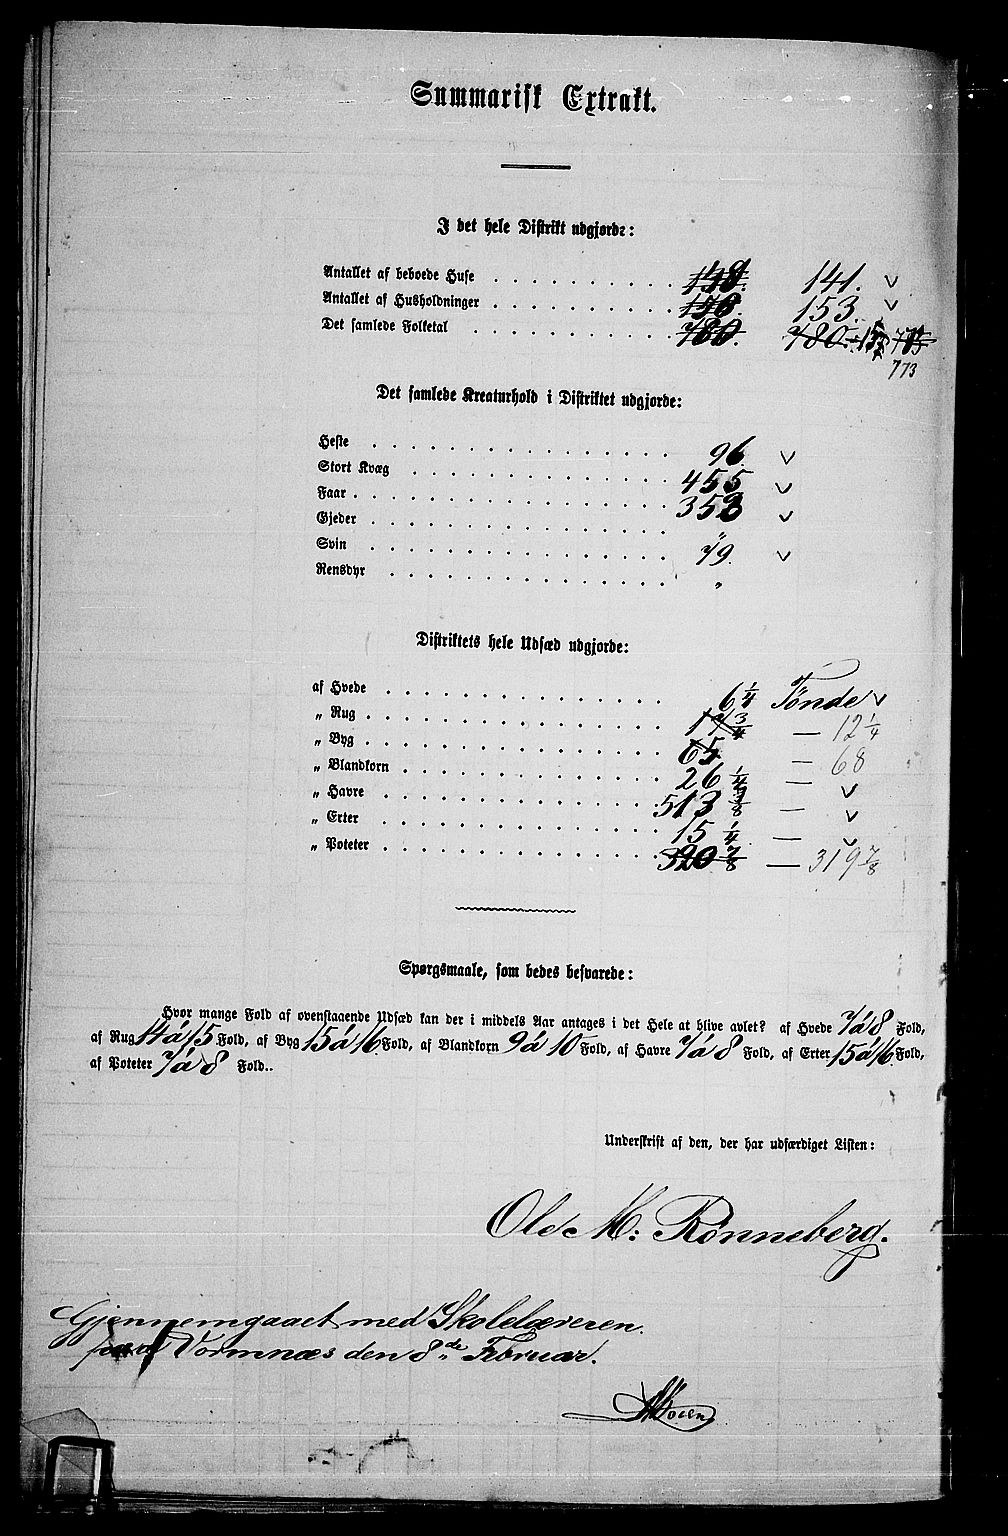 Summarisk Extrakt.
I det hele Distrikt udgjorde:
Antallet af beboede Huse 149. 141. v
Antallet af Husholdninger 156. 153. v
Det samlede Folketal 780. 780.
773
Det samlede Kreaturhold i Distriktet udgjorde:
Heste 96. v
Stort Kvæg 455 v
Faar 353 v
Gjeder "
Svin 79. v
Rensdyr "
Distriktets hele Udsæd udgjorde:
af Hvede 6 1/4 Tønde v
„ Rug 17 3/4 — 12 1/4
„ Byg 65 — 68
„ Blandkorn 26 1/4 — v
„ Havre 513 3/8 — v
„ Erter 15 1/4 — v
„ Poteter 320 7/8 — 319 7/8
Spørgsmaale, som bedes besvarede:
Hvor mange Fold af ovenstaaende Udsæd kan der i middels Aar antages i det Hele at blive avlet? af Hvede 7 á 8 Fold,
af Rug 14 á 15 Fold, af Byg 15 á 16. Fold, af Blandkorn 9 á 10 Fold, af Havre 7 á 8 Fold, af Erter 15 á 16. Fold,
af Poteter 7 á 8 Fold..
Underskrift af den, der har udfærdiget Listen:
Ole M: Rønneberg.
Gjennemgaaet med Skolelæreren.
paa Vormnæs den 8de Februar.